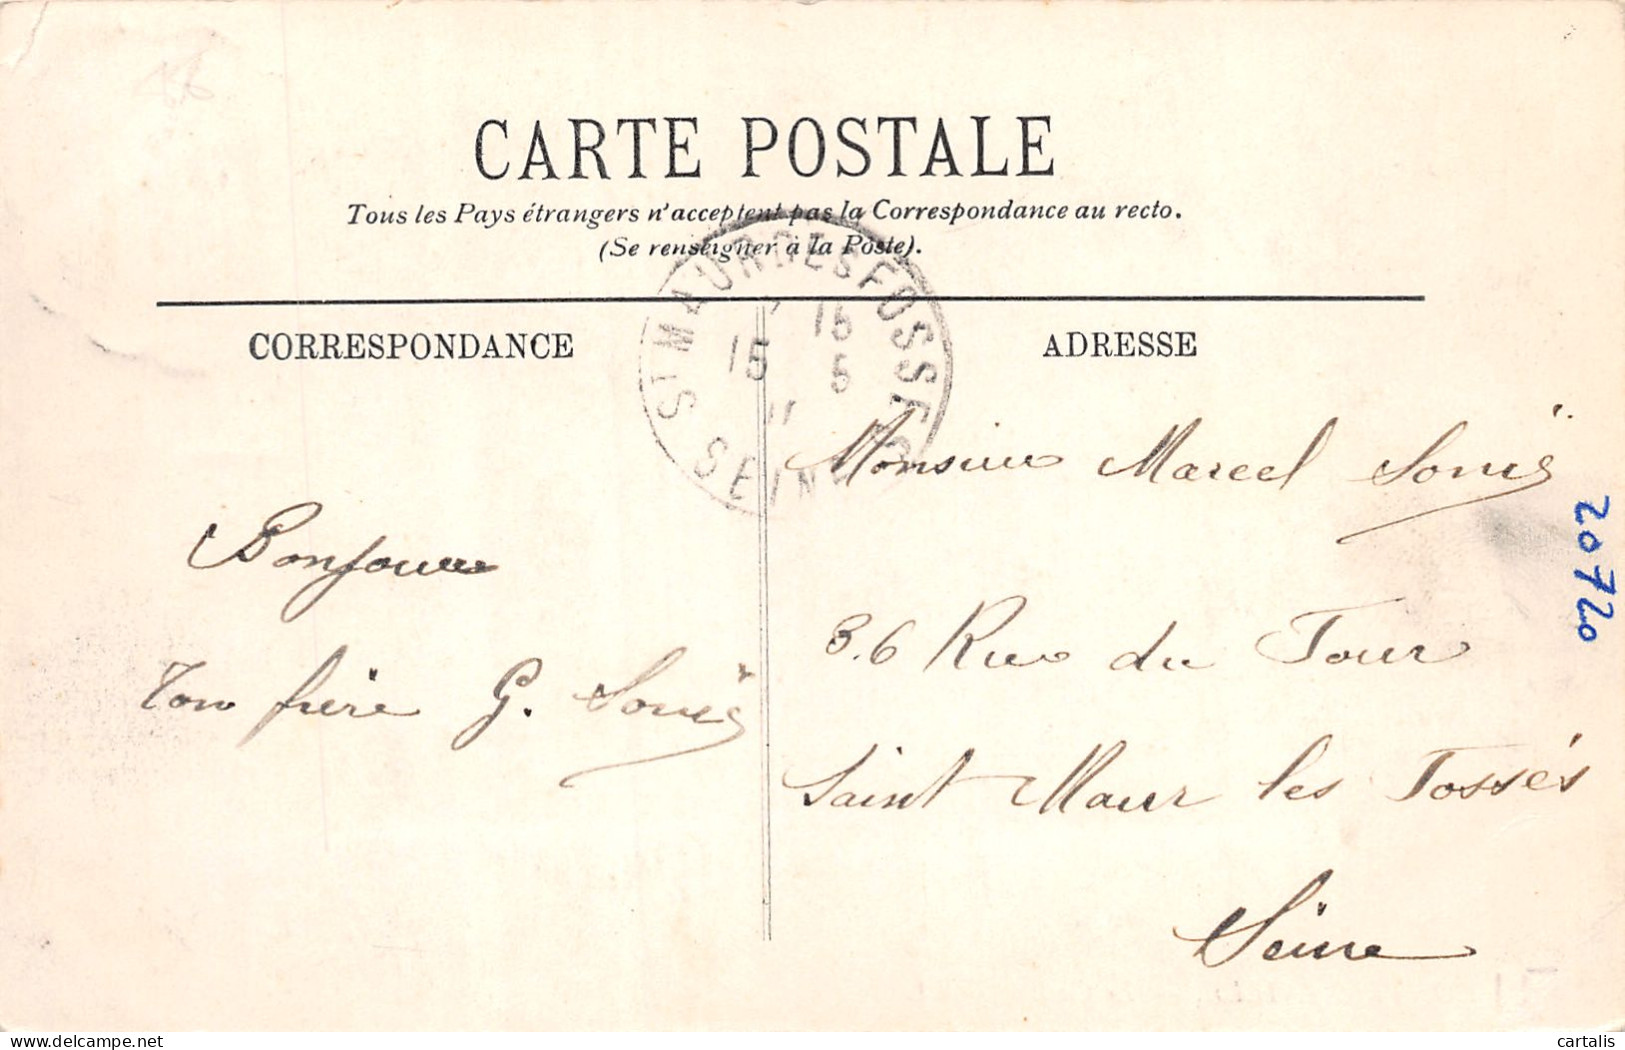 CARTE POSTALE
Tous les Pays étrangers n'acceptent pas la Correspondance au recto.
(Se renseigner à la Poste).
CORRESPONDANCE
ADRESSE
ST MAUR DES FOSSES
15 15 5
11
SEINE
Bonjour
Ton frère G.
Monsieur Marcel
36 Rue du Four
Saint Maur les Fossés
Seine
20720
cartalis